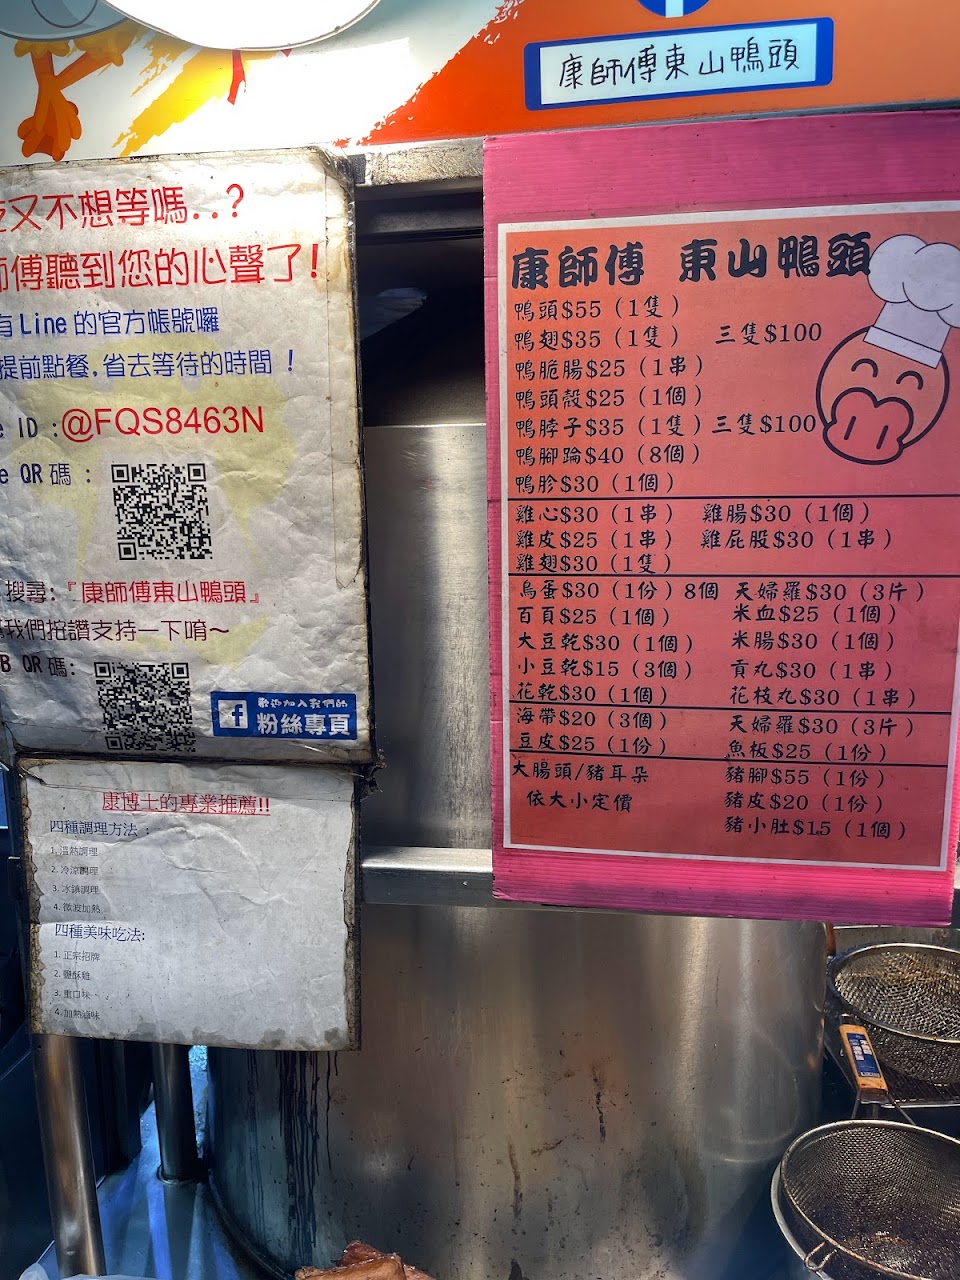 康師傅東山鴨頭
又不想等嗎..?
師傅聽到您的心聲了!
有Line的官方帳號囉
提前點餐,省去等待的時間 !
e ID :@FQS8463N
e QR碼 :
搜尋:『康師傅東山鴨頭』
我們按讚支持一下唷~
B QR碼:
歡迎加入我們的
粉絲專頁
康博士的專業推薦!!
四種調理方法 :
1. 溫熱調理
2. 冷涼調理
3. 冰鎮調理
4. 微波加熱
四種美味吃法:
1. 正宗招牌
2. 鹽酥雞
3. 重口味
4. 加熱滷味
康師傅 東山鴨頭
鴨頭$55（1隻）
鴨翅$35（1隻） 三隻$100
鴨脆腸$25（1串）
鴨頭殼$25（1個）
鴨脖子$35（1隻）三隻$100
鴨腳踚$40（8個）
鴨肣$30（1個）
雞心$30（1串） 雞腸$30（1個）
雞皮$25（1串） 雞屁股$30（1串）
雞翅$30（1隻）
鳥蛋$30（1份）8個 天婦羅$30（3片）
百頁$25（1個） 米血$25（1個）
大豆乾$30（1個） 米腸$30（1個）
小豆乾$15（3個） 貢丸$30（1串）
花乾$30（1個） 花枝丸$30（1串）
海帶$20（3個） 天婦羅$30（3片）
豆皮$25（1份） 魚板$25（1份）
大腸頭/豬耳朵 豬腳$55（1份）
依大小定價 豬皮$20（1份）
豬小肚$15（1個）